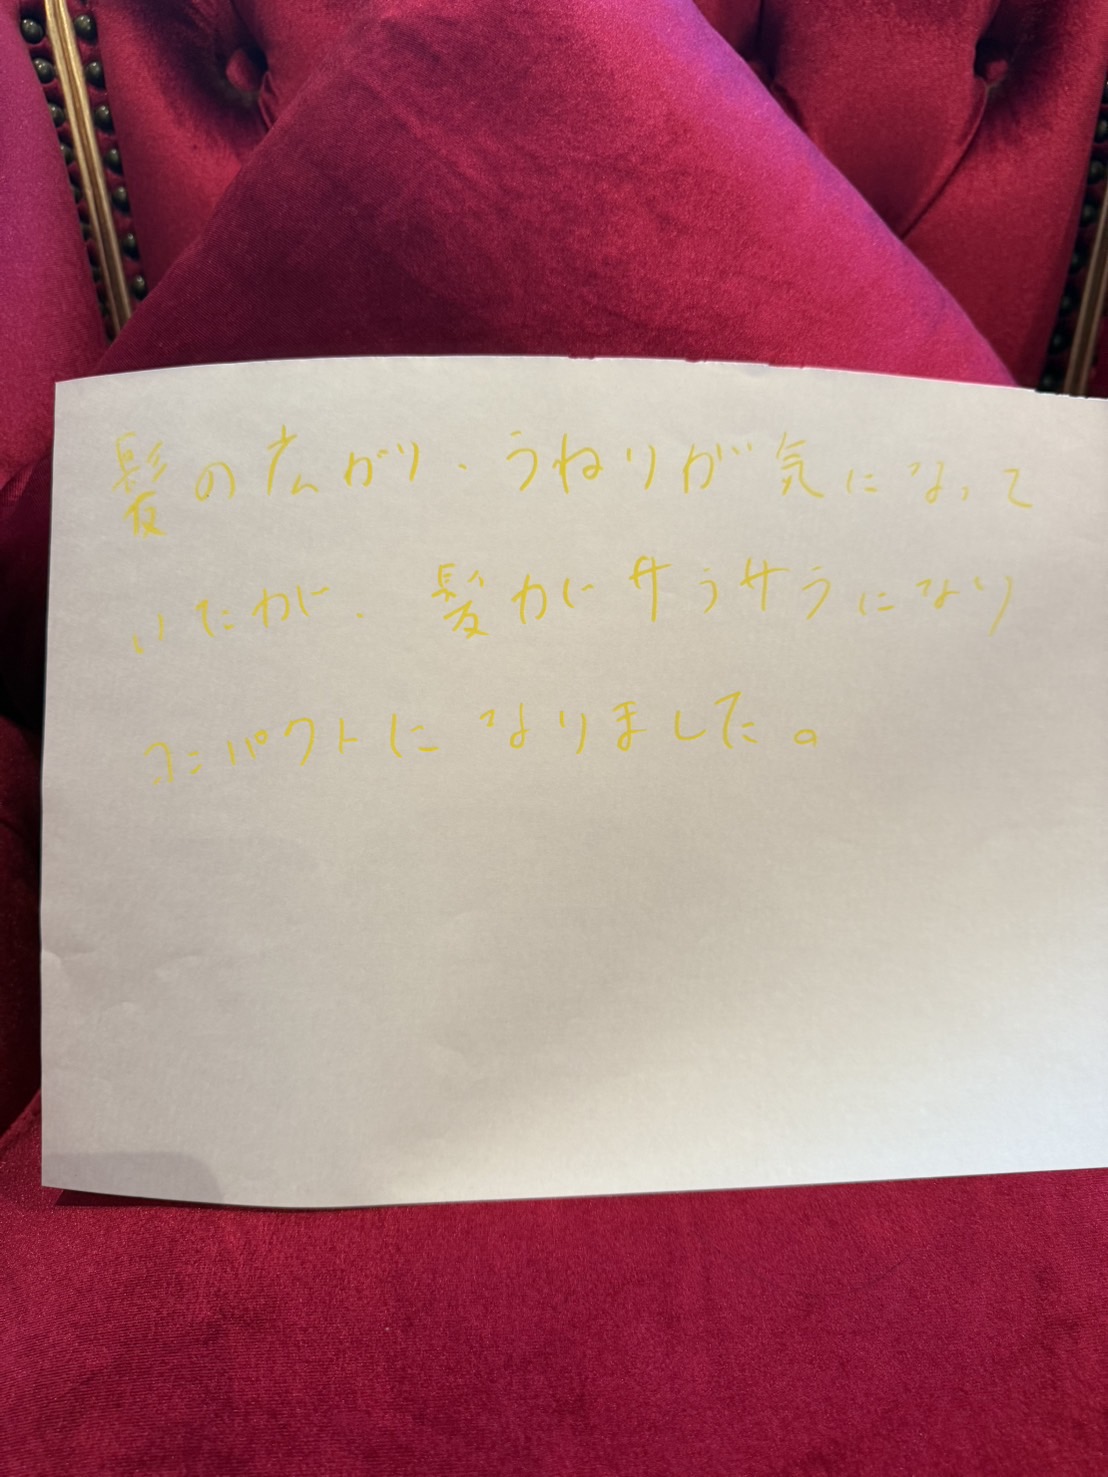 髪の広がり、うねりが気になって
いたが、髪がサラサラになり
コンパクトになりました。